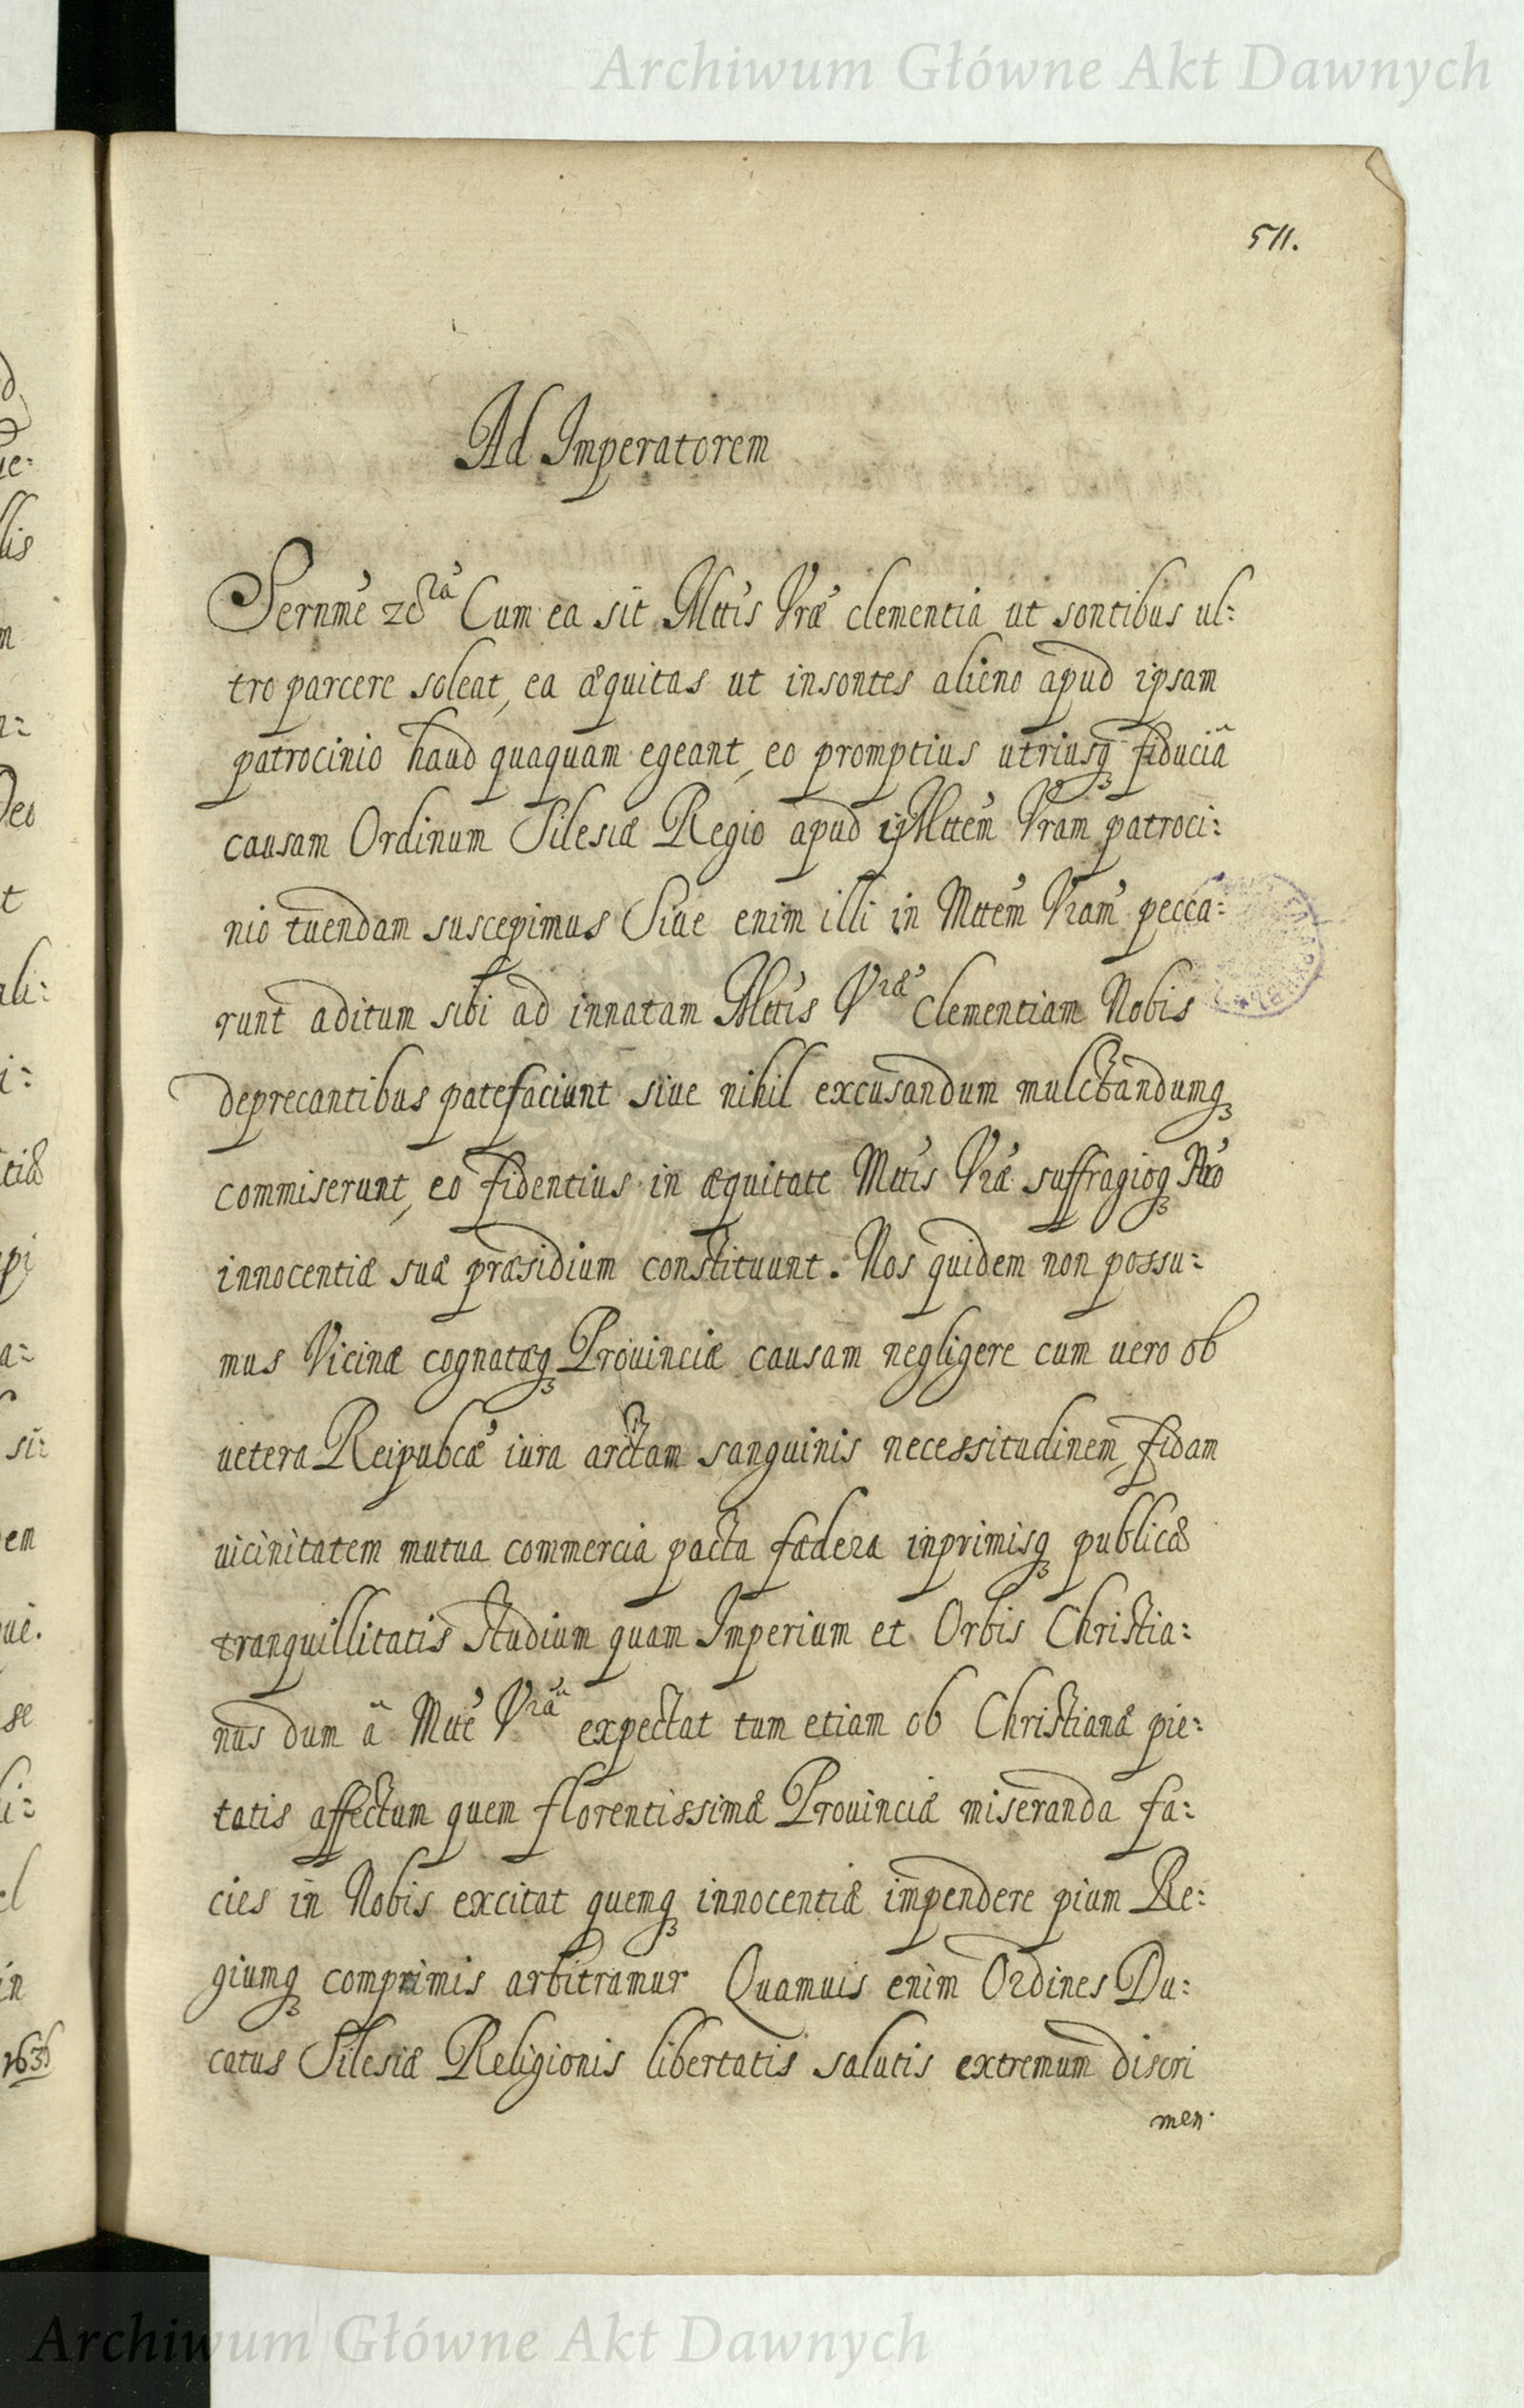 Archiwum Główne Akt Dawnych
511.
Ad Imperatorem
Sernme Cum ea sit Mttis Vræ clementia ut sontibus ul:
tro parcere soleat, ea æquitas ut insontes alieno apud ipsam
patrocinio haud quaquam egeant, eo promptius utriusq fiduciâ
causam Ordinum Silesiæ Regio apud Mttem Vram patroci:
nio tuendam suscepimus Siue enim illi in Mttem Vram pecca:
runt aditum sibi ad innatam Mttis Vræ Clementiam Nobis
deprecantibus patefaciunt siue nihil excusandum mulctandumq
commiserunt, eo fidentius in æquitate Mttis Vræ suffragioq Nro
innocentiæ suæ præsidium constituunt. Nos quidem non possu:
mus Vicinæ cognatæq Prouinciæ causam negligere cum uero ob
uetera Reipubcæ iura arctam sanguinis necessitudinem, fidam
uicinitatem mutua commercia pacta fædera inprimisq publicæ
tranquillitatis studium quam Imperium et Orbis Christia:
nus dum â Mtte Vrâ expectat tum etiam ob Christianæ pie:
tatis affectum quem florentissimæ Prouinciæ miseranda fa:
cies in Nobis excitat quemq innocentiæ impendere pium Re:
giumq comprimis arbitramur Quamuis enim Ordines Du:
catus Silesiæ Religionis libertatis salutis extremum discri
men.
Archiwum Główne Akt Dawnych